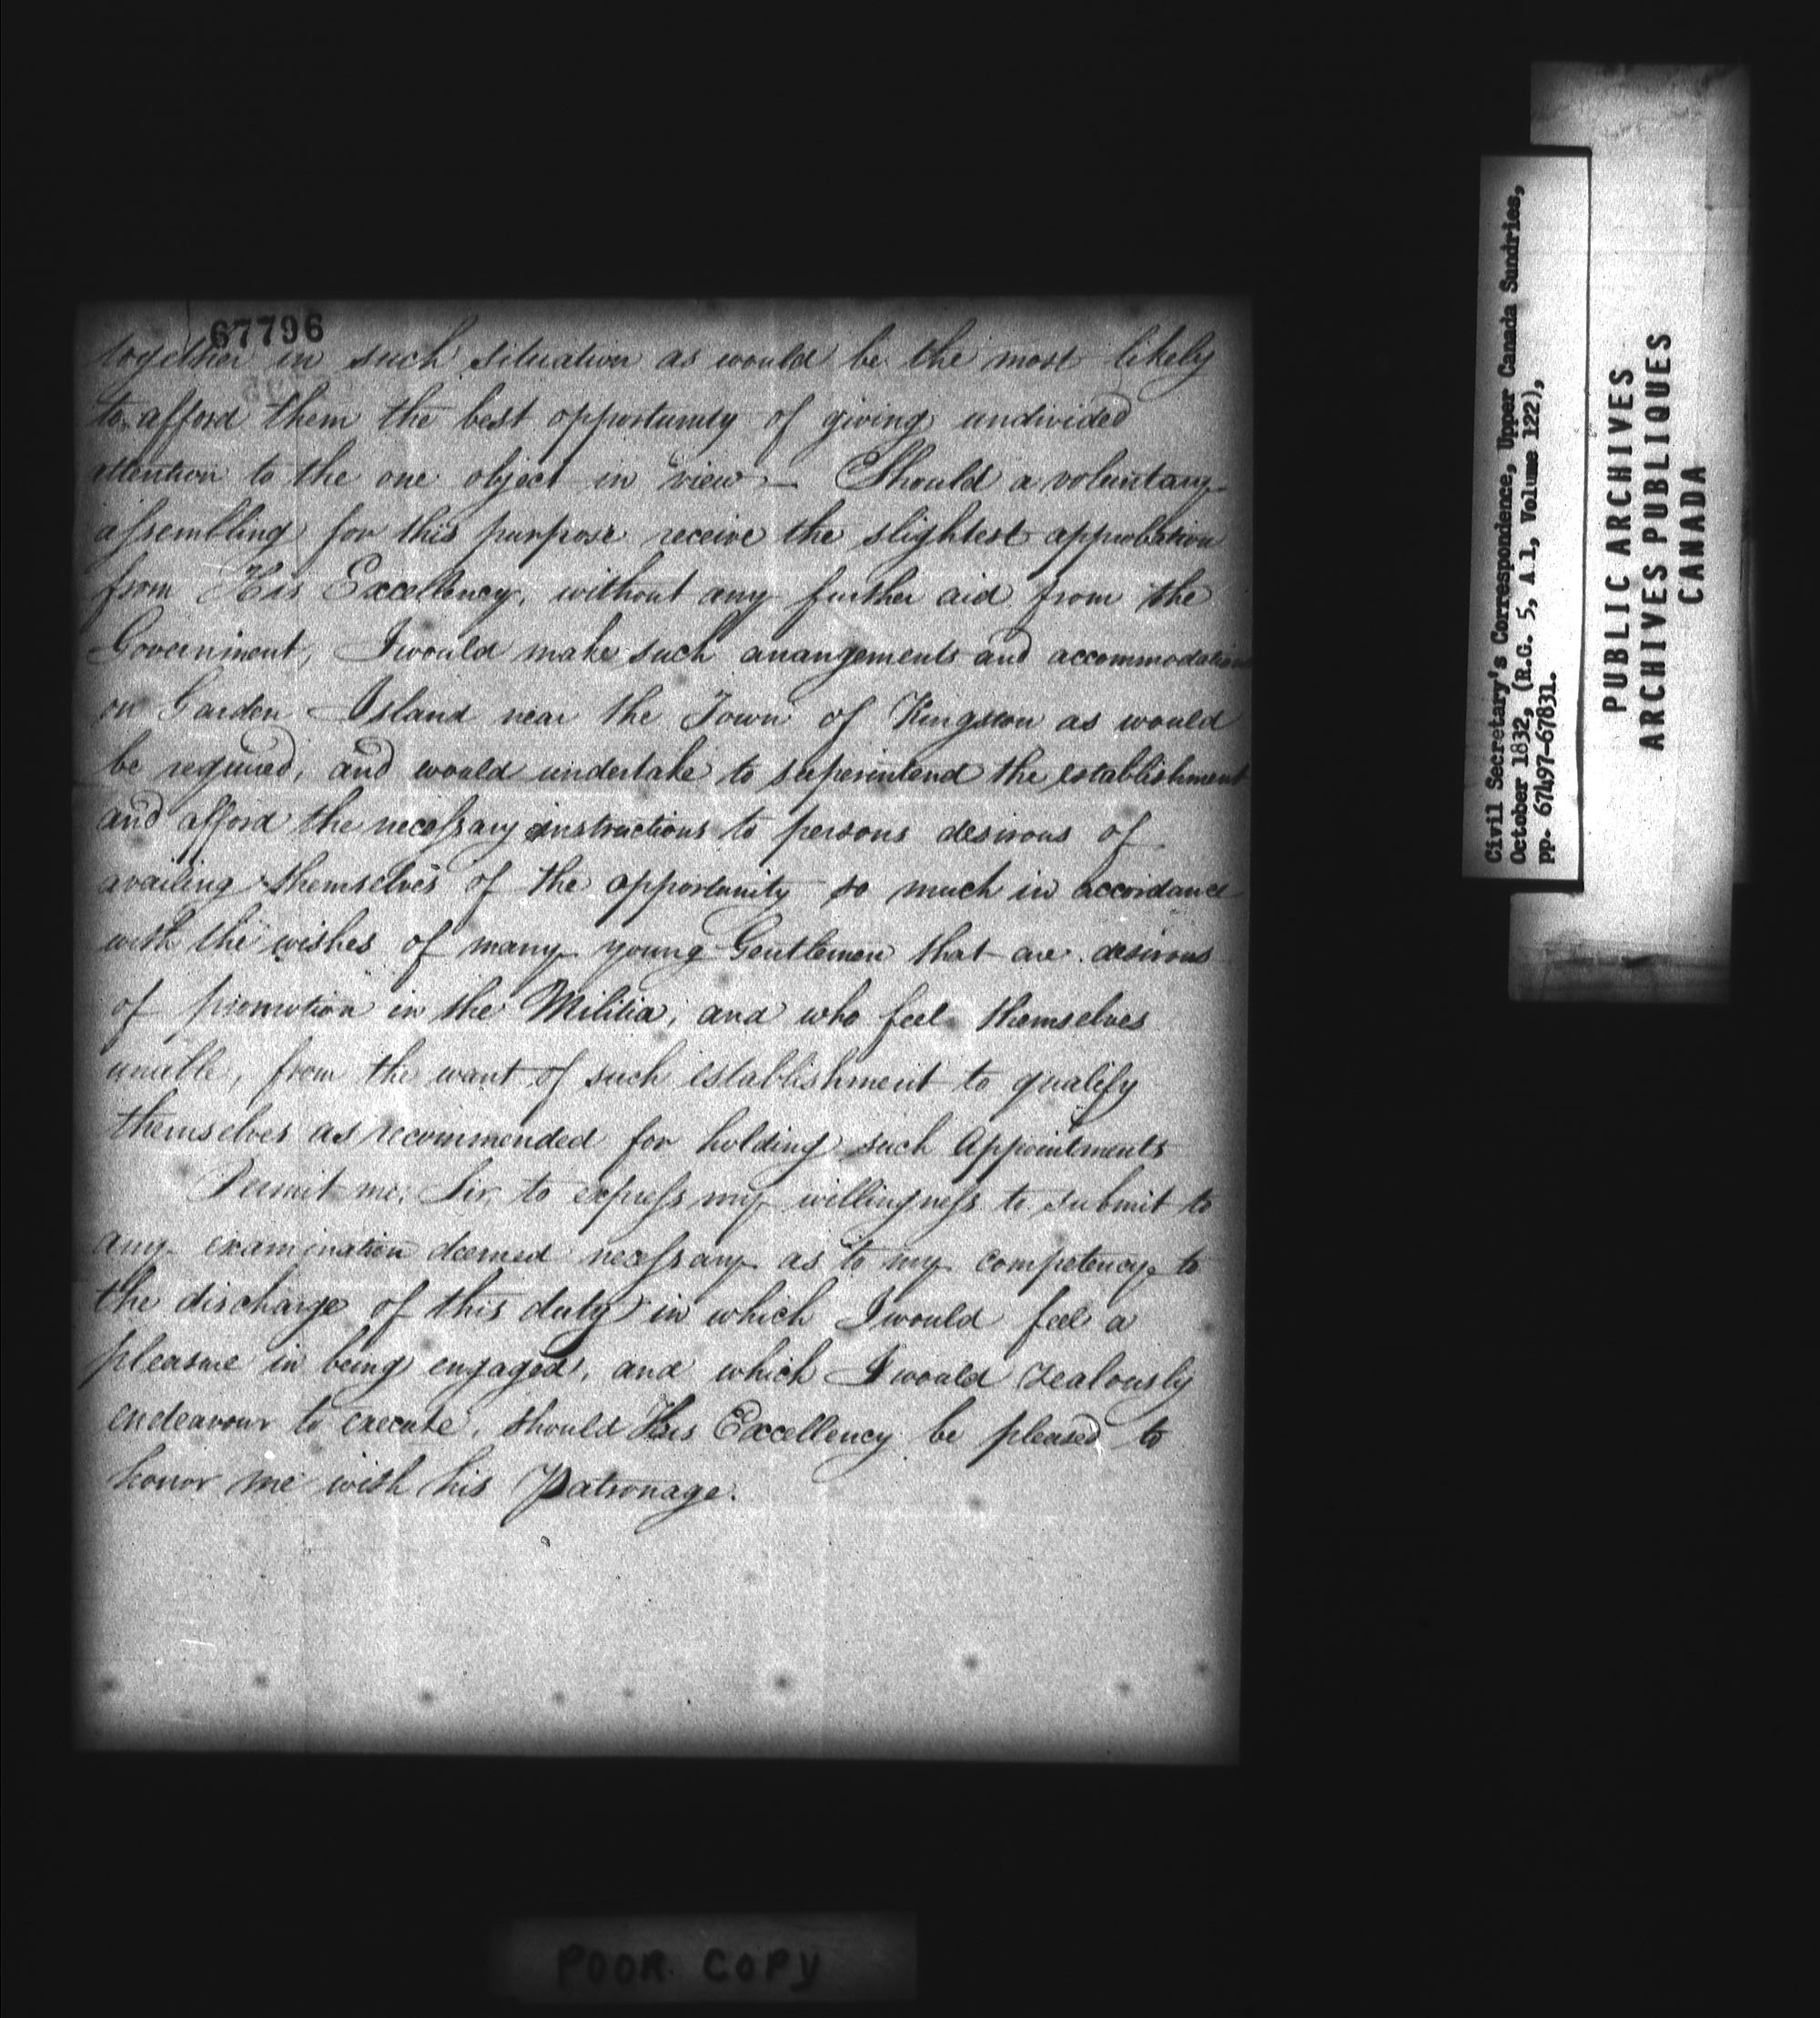 67796
together in such situation as would be the most likely
to afford them the best opportunity of giving undivided
attention to the one object in view – Should a voluntary
assembling for this purpose receive the slightest approbation
from His Excellency, without any further aid from the
Government, I would make such arrangements and accommodations
on Garden Island near the Town of Kingston as would
be required, and would undertake to superintend the establishment
and afford the necessary instructions to persons desirous of
availing themselves of the opportunity so much in accordance
with the wishes of many young Gentlemen that are desirous
of promotion in the Militia, and who feel themselves
unable, from the want of such establishment to qualify
themselves as recommended for holding such Appointments
Permit me, Sir, to express my willingness to submit to
any examination deemed necessary as to my competency to
the discharge of this duty in which I would feel a
pleasure in being engaged, and which I would zealously
endeavour to execute, should His Excellency be pleased to
honor me with his Patronage.
Civil Secretary's Correspondence, Upper Canada Sundries,
October 1832, (R.G. 5, A 1, Volume 122),
pp. 67497-67831.
PUBLIC ARCHIVES
ARCHIVES PUBLIQUES
CANADA
POOR COPY